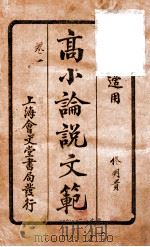 適用
高小論說文範
卷一
上海會文堂書局發行
www.duxiu.com